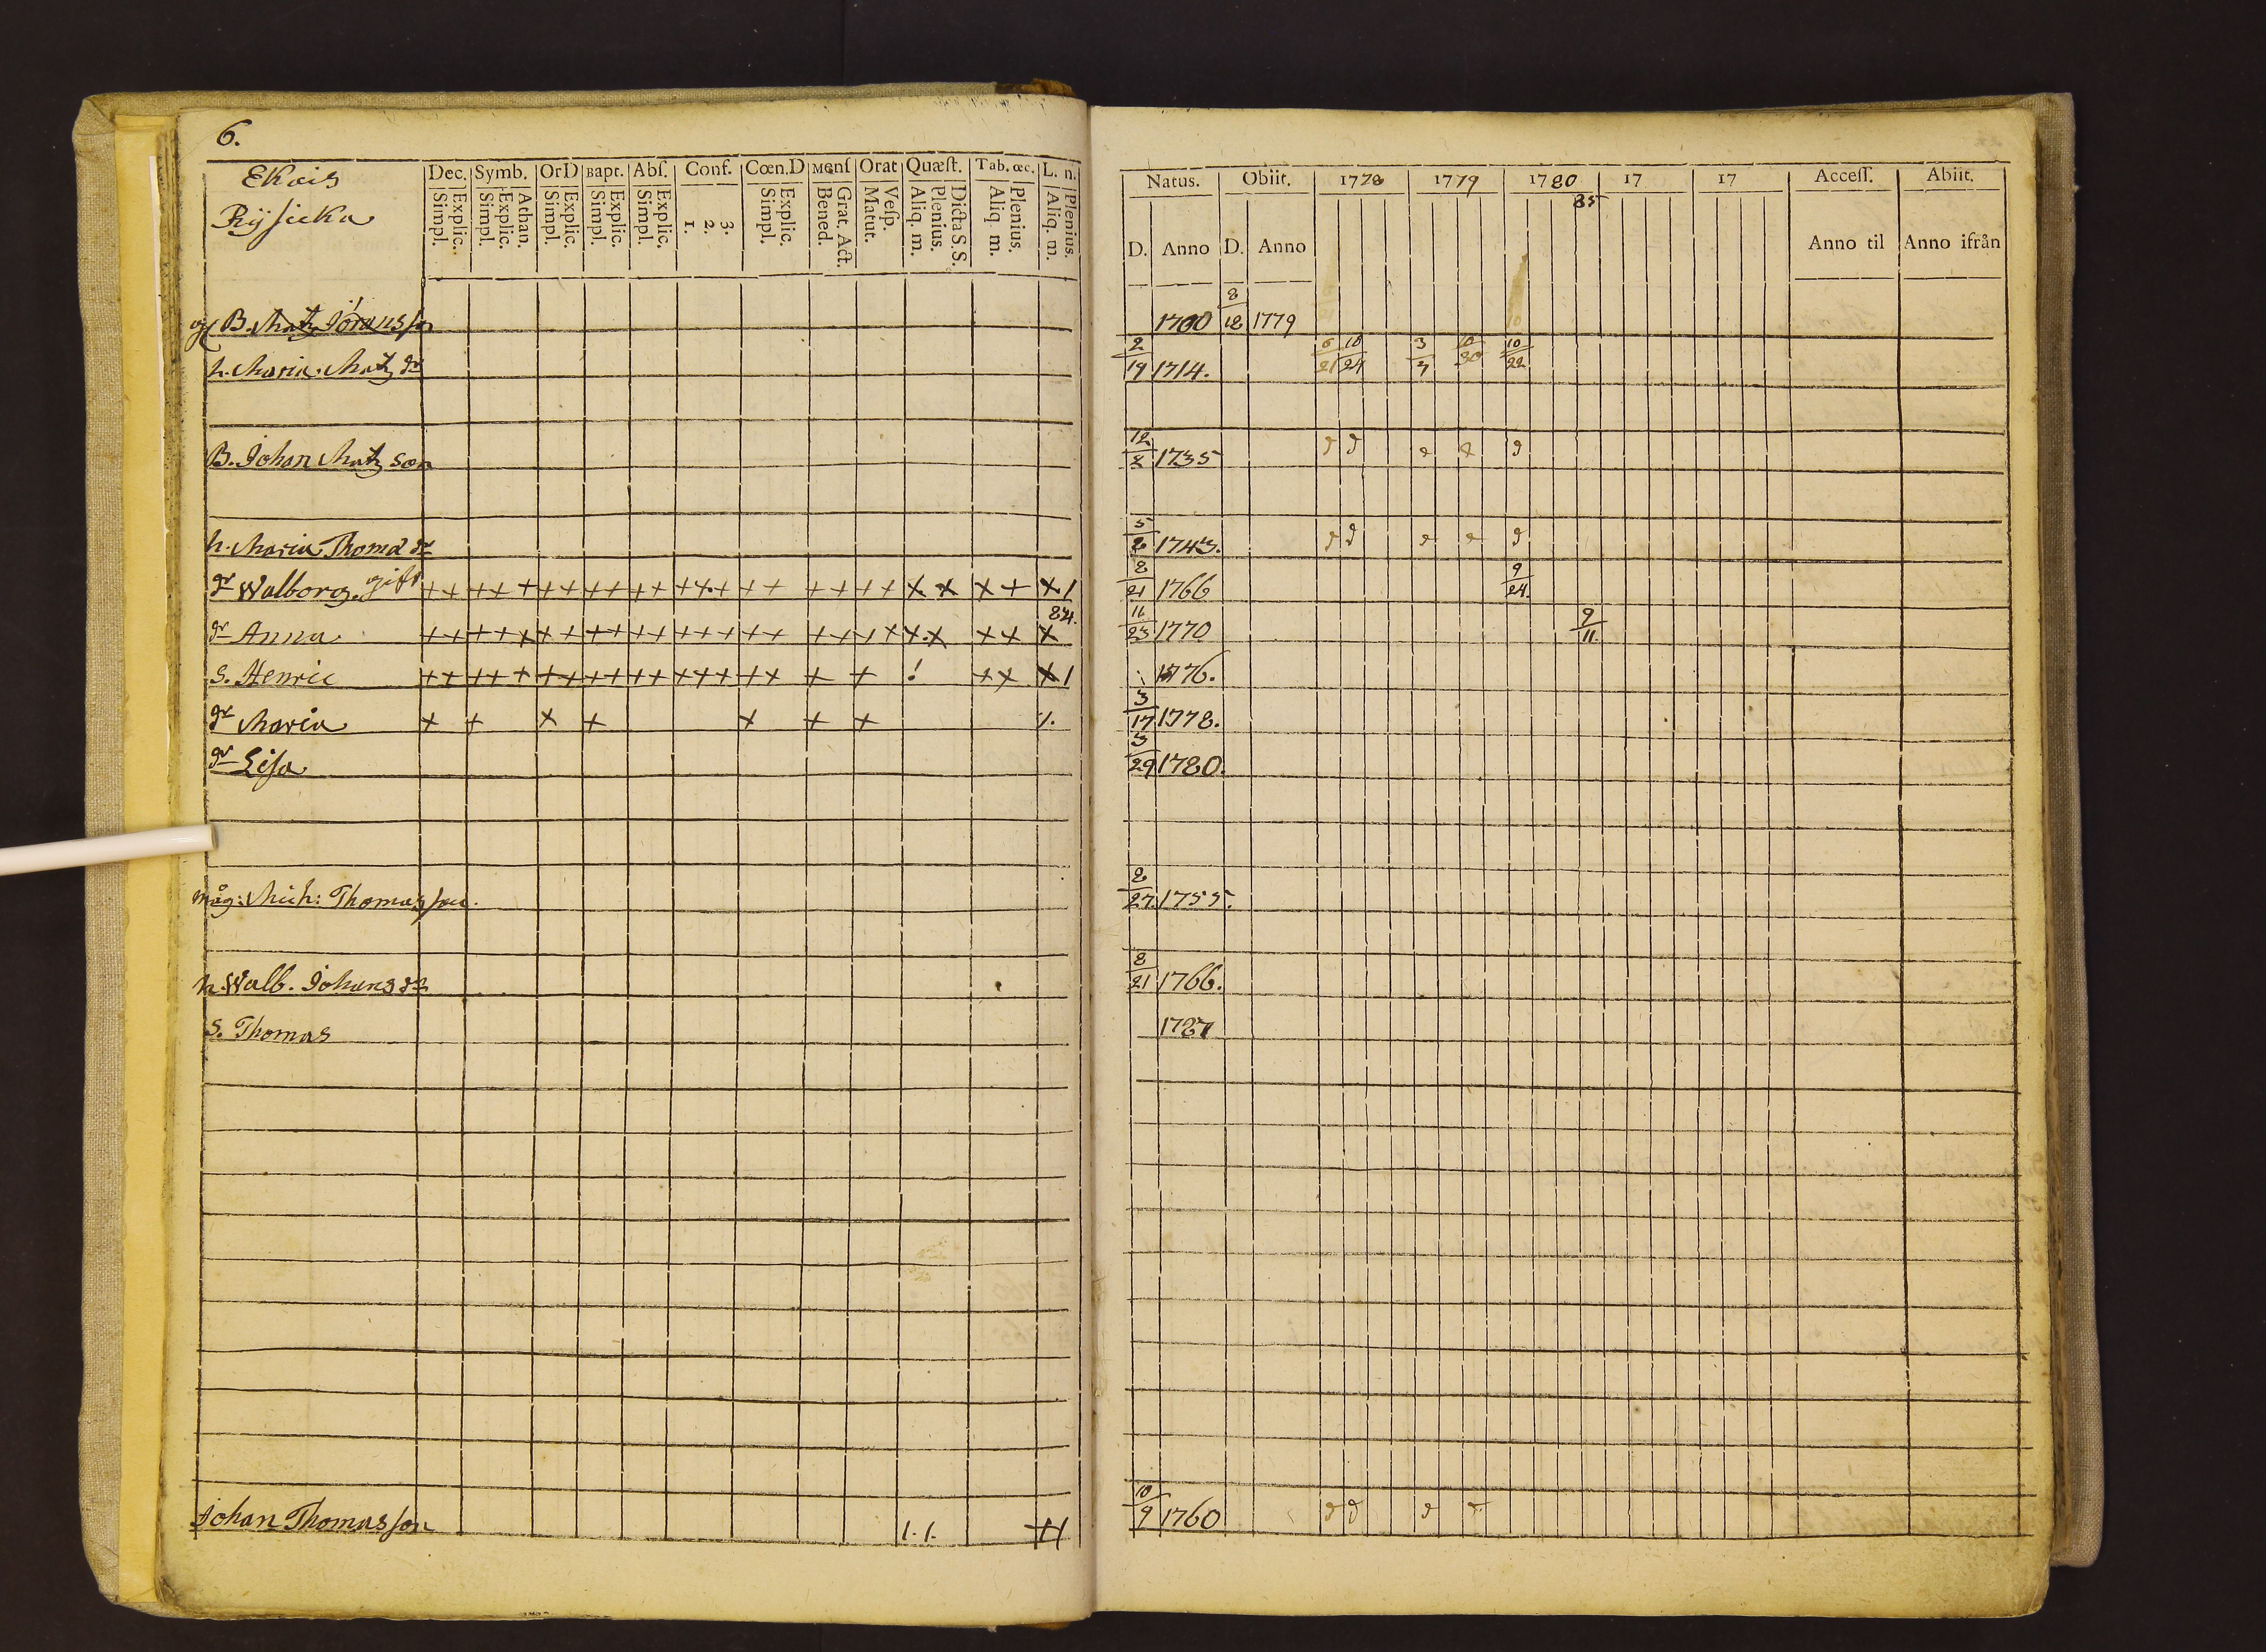 6.
Ekois
Rysicka
Dec. Symb. OrD Bapt. Abſ. Conf. Cœn.D Menſ Orat Quæſt. Tab. œc. L. n.
Simpl. Explic. Simpl. Explic. Athan. Simpl. Explic. Simpl. Explic. Simpl. Explic. 1. 2. 3. Simpl. Explic. Bened. Grat. Act. Matut. Veſp. Aliq. m. Plenius. Dicta S. S. Aliq. m. Plenius. Aliq. m. Plenius.
B. Matz Jöransson
h. Maria Matz dr
B. Johan Matz Son
h. Maria Thomæ dr
dr Walborg. gift + + + + + + + + + + + + + + + + + + + + x x x + x 1
824.
dr Anna + + + + + + + + + + + + + + + + + + + + x x + + x
S. Henric + + + + + + + + + + + + + + + + + + ! + x x 1
dr Maria + + x + x + + 1.
dr Lisa
måg: Mich: Thomasson.
h. Walb. Johans dr
S. Thomas
Johan Thomasson 1. 1. H
Natus. Obiit. 1778 1779 1780 17 17 Acceſſ. Abiit.
85
D. Anno D. Anno Anno til Anno ifrån
1700 8/18 1779
2/19 1714. 6/21 10/24 3/7 10/30 10/22
12/8 1735
5/8 1743.
8/21 1766 9/24.
11/23 1770 9/11.
1776.
3/17 1778.
3/29 1780.
8/27. 1755.
8/21 1766.
1787
10/9 1760